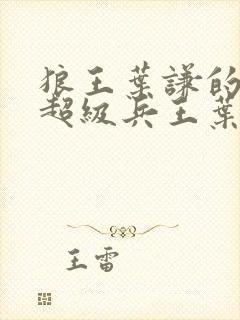 狼王葉謙的
超級兵王葉
王雷